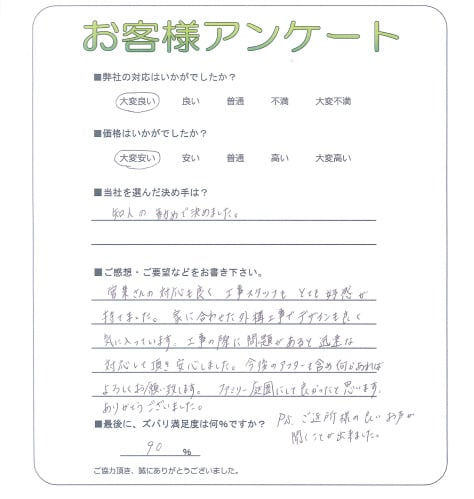 お客様アンケート
■弊社の対応はいかがでしたか？
大変良い 良い 普通 不満 大変不満
■価格はいかがでしたか？
大変安い 安い 普通 高い 大変高い
■当社を選んだ決め手は？
知人の勧めで決めました。
■ご感想・ご要望などをお書き下さい。
営業さんの対応も良く工事スタッフもとても好感が
持てました。家に合わせた外構工事でデザインも良く
気に入っています。工事の際に問題があると迅速な
対応して頂き安心しました。今後のアフターも含め何かあれば
よろしくお願い致します。ファミリー庭園にして良かったと思います。
ありがとうございました。
P.S. ご近所様の良いお声が
聞くことが出来ました。
■最後に、ズバリ満足度は何%ですか？
90 %
ご協力頂き、誠にありがとうございました。